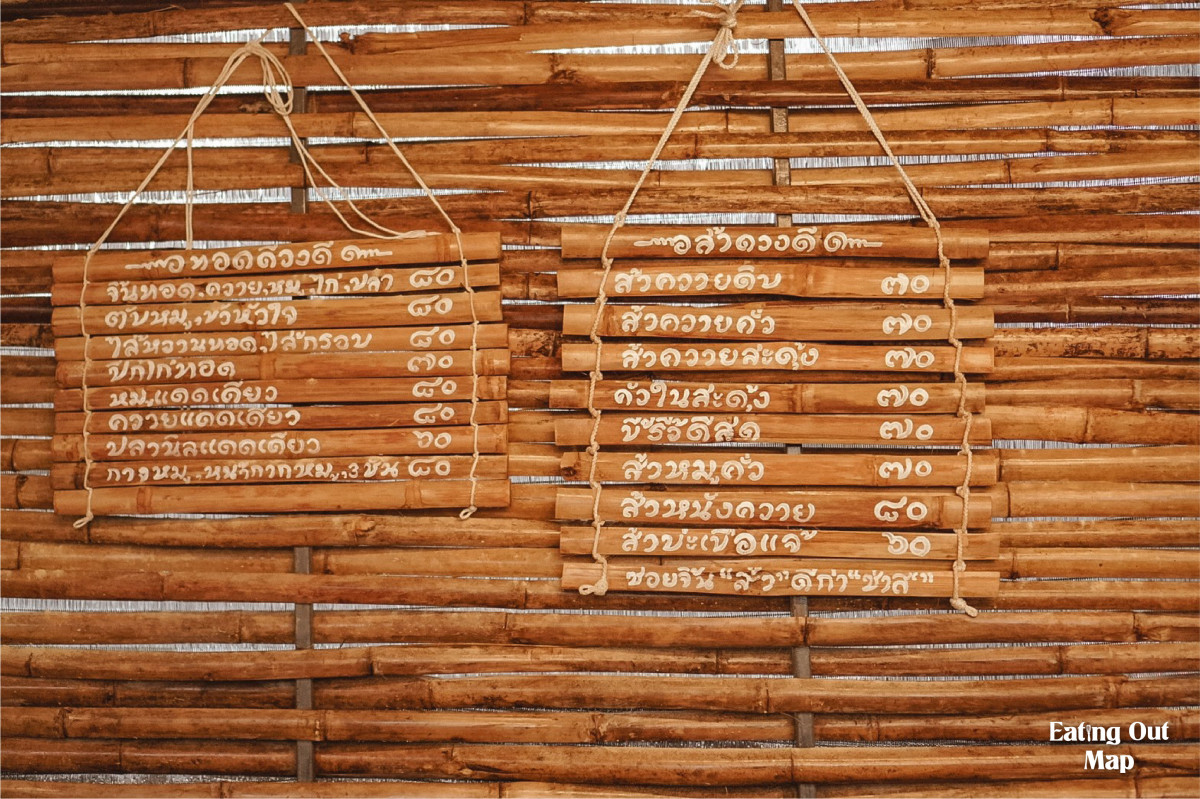 ทอดดวงดี
จิ๊นทอด,ควาย,หมู,ไก่,ปลา ๘๐
ตับหมู,ขั้วหัวใจ ๘๐
ไส้หวานทอด,ไส้กรอบ ๘๐
ปีกไก่ทอด ๗๐
หมูแดดเดียว ๘๐
ควายแดดเดียว ๘๐
ปลานิลแดดเดียว ๖๐
กางหมู,หนังกากหมู,๓ ชั้น ๘๐
ส้าดวงดี
ส้าควายดิบ ๗๐
ส้าควายคั่ว ๗๐
ส้าควายสะดุ้ง ๗๐
คั่วในสะดุ้ง ๗๐
ขี้รีรีดีสด ๗๐
ส้าหมูคั่ว ๗๐
ส้าหนังควาย ๘๐
ส้าบะเขือแจ้ ๖๐
ซอยจิ๊น "ส้า" ดีก่า "ซ้าส่"
Eating Out
Map